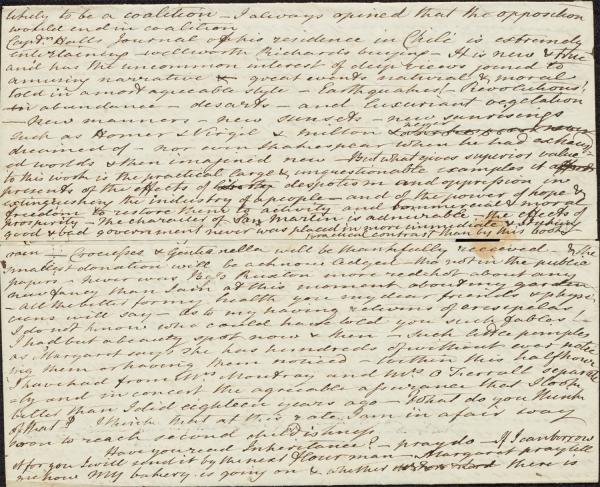 likely to be a coalition – I always opined that the opposition
would end in coalition
Captn. Hall's Journal of his residence in Chili is extremely
entertaining – well worth Richard's buying – It is new & true
and has the uncommon interest of deep views joined to
amusing narrative great events natural & moral
told in a most agreeable style – Earthquakes! – Revolutions!
in abundance – desarts – and luxuriant vegetation
– New manners – new sunsets – new sunrisings
such as Homer & Virgil & Milton never
dreamed of – nor even Shakespear when he had exhaust-
ed worlds & then imagined new – But what gives superior value
to this work is the practical large & unquestionable examples it
presents of the effects of despotism and oppression in
extinguishing the industry of a people – and of the power of hope &
freedom to restore them to industry and moral
prosperity – The character of San Martin is admirable – the effects of
good & bad government never was placed in more immediate & striking
practical contrast than by this book
rain – Crocuses & Gentianella will be thankfully received – & the
smallest donation will be acknowledged – tho not in the public
papers – Never was Bess Ruxton more red hot about any
new fancy than I am at this moment about my garden
– All the better for my health you my dear friends & physi-
cians will say – As to my having returns of erysipelas
I do not know who could have told you such fables!
I had but a beauty spot now & then – such little pimples
as Margaret says she has hundreds of without ever notic-
ing them or having them noticed – Within this half hour
I have had from Mrs. Moutray and Mrs. O Ferrall separate-
ly and in concert the agreeable assurance that I look
better than I did eighteen years ago – What do you think
of that? I think that at this rate I am in a fair way
soon to reach second childishness
Have you read Inheritance? – pray do – If I can borrow
it for you I will send it by the next Flourman – Margaret pray tell
me how my bakery is going on & whether there is